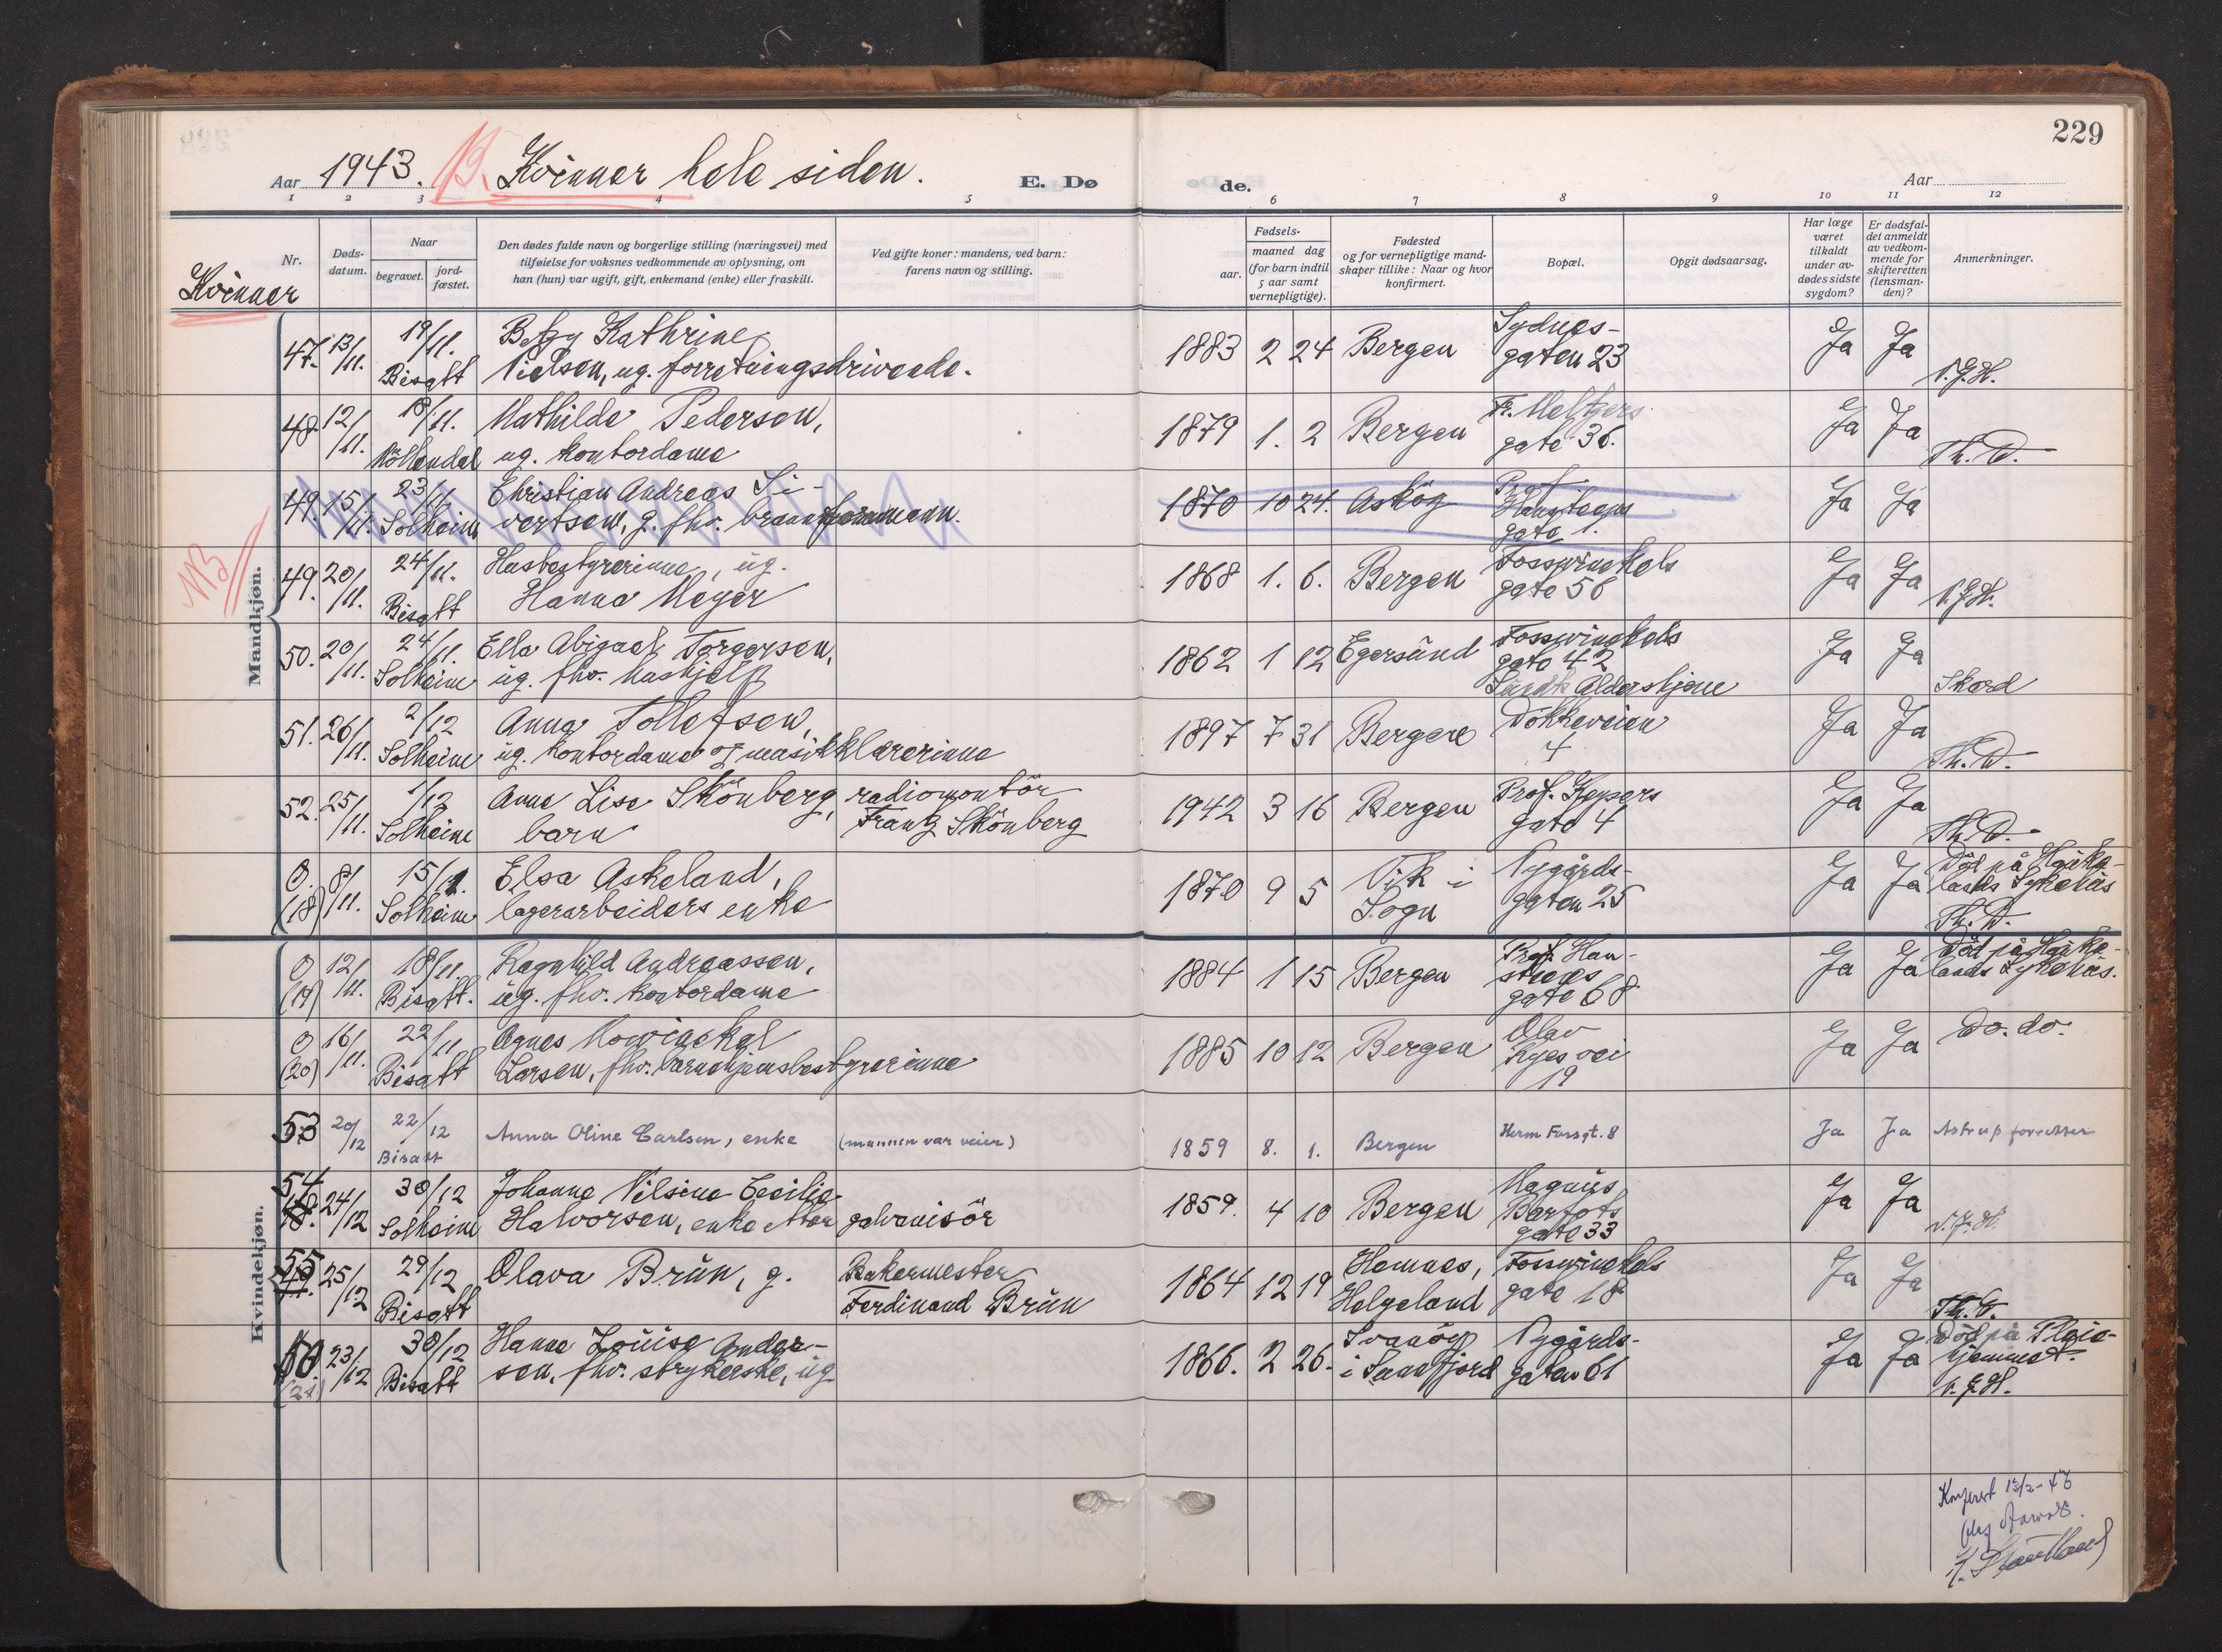 229
Aar 1943. NB. Kvinner hele siden. E. Dø
de. Aar
1 2 3 4 5 6 7 8 9 10 11 12
Nr.
Døds-
datum.
Naar
begravet.
jord-
fæstet.
Den dødes fulde navn og borgerlige stilling (næringsvei) med
tilføielse for voksnes vedkommende av oplysning, om
han (hun) var ugift, gift, enkemand (enke) eller fraskilt.
Ved gifte koner: mandens, ved barn:
farens navn og stilling.
Fødsels-
aar.
maaned dag
(for barn indtil
5 aar samt
vernepligtige).
Fødested
og for vernepligtige mand-
skaper tillike: Naar og hvor
konfirmert.
Bopæl.
Opgit dødsaarsag.
Har læge
været
tilkaldt
under av-
dødes sidste
sygdom?
Er dødsfal-
det anmeldt
av vedkom-
mende for
skifteretten
(lensman-
den)?
Anmerkninger.
Kvinner
NB
Mandkjøn.
47. 13/11. 19/11. Betzy Kathrine 1883 2 24 Bergen Sydnes- Ja Ja
Bisatt Nielsen, ug. forretningsdrivende. gaten 23
48. 12/11. 18/11. Mathilde Pedersen, 1879 1. 2 Bergen Fr. Meltzers Ja Ja
Möllendal ug. kontordame gate 36. Th. D.
49. 15/11. 23/11 Christian Andreas Si- 1870 10 24. Asköy Prof. Ja Ja
Solheim vertsen, g. fhv. brannformann. Hansteens
gate 1.
49. 20/11. 24/11. Husbestyrerinne, ug. 1868 1. 6. Bergen Fosswinckels Ja Ja
Bisatt Hanna Meyer gate 56
50. 20/11. 24/11. Ella Abigael Torgersen, 1862 1 12 Egersund Fosswinckels Ja Ja
Solheim ug. fhv. hushjelp gate 42
Aldershjem Skard
51. 26/11. 2/12 Anna Tollefsen, 1897 7 31 Bergen Dokkeveien Ja Ja
Solheim ug. kontordame og musikklærerinne 4 Th. D.
52. 25/11. 1/12 Anne Lise Skönberg, radiomontör 1942 3 16 Bergen Prof. Keysers Ja Ja
Solheim barn Frantz Skönberg gate 4 Th. D.
0. (18) 8/11. 15/11. Elsa Askeland, 1870 9 5 Vik i Nygårds- Ja Ja Död på Hauke-
Solheim lagerarbeiders enke Sogn gaten 25 lands Sykehus
Th. D.
0 (19) 12/11. 18/11. Ragnhild Andreassen, 1884 1 15 Bergen Prof. Han- Ja Ja Död på Hauke-
Bisatt. ug. fhv. kontordame steens lands Sykehus.
gate 68
0 (20) 16/11. 22/11 Agnes Mowinckel 1885 10 12 Bergen Olav Ja Ja Do. do.
Bisatt Larsen, fhv. barnehjemsbestyrerinne Ryes vei
19
Kvindekjøn.
53 20/12 22/12 Anna Oline Carlsen, enke (mannen var veier) 1859 8. 1. Bergen Herm Fossgt. 8 Ja Ja Astrup forretter
Bisatt
54 48. 24/12 30/12 Johanne Nilsine Cecilie 1859. 4 10 Bergen Magnus Ja Ja
Solheim Halvorsen, enke etter galvanisör Barfots
gate 33
55 49. 25/12 29/12 Olava Brün, g. Bakermester 1864 12 19 Hemnes, Fosswinckels Ja Ja
Bisatt Ferdinand Brün Helgeland gate 18 Th. D.
(21) 23/12 30/12 Hanna Louise Ander- 1866. 2 26. Svanöy Nygårds- Ja Ja Död på Pleie-
Bisatt sen, fhv. strykerske, ug. i Sunnfjord gaten 61 hjemmet.